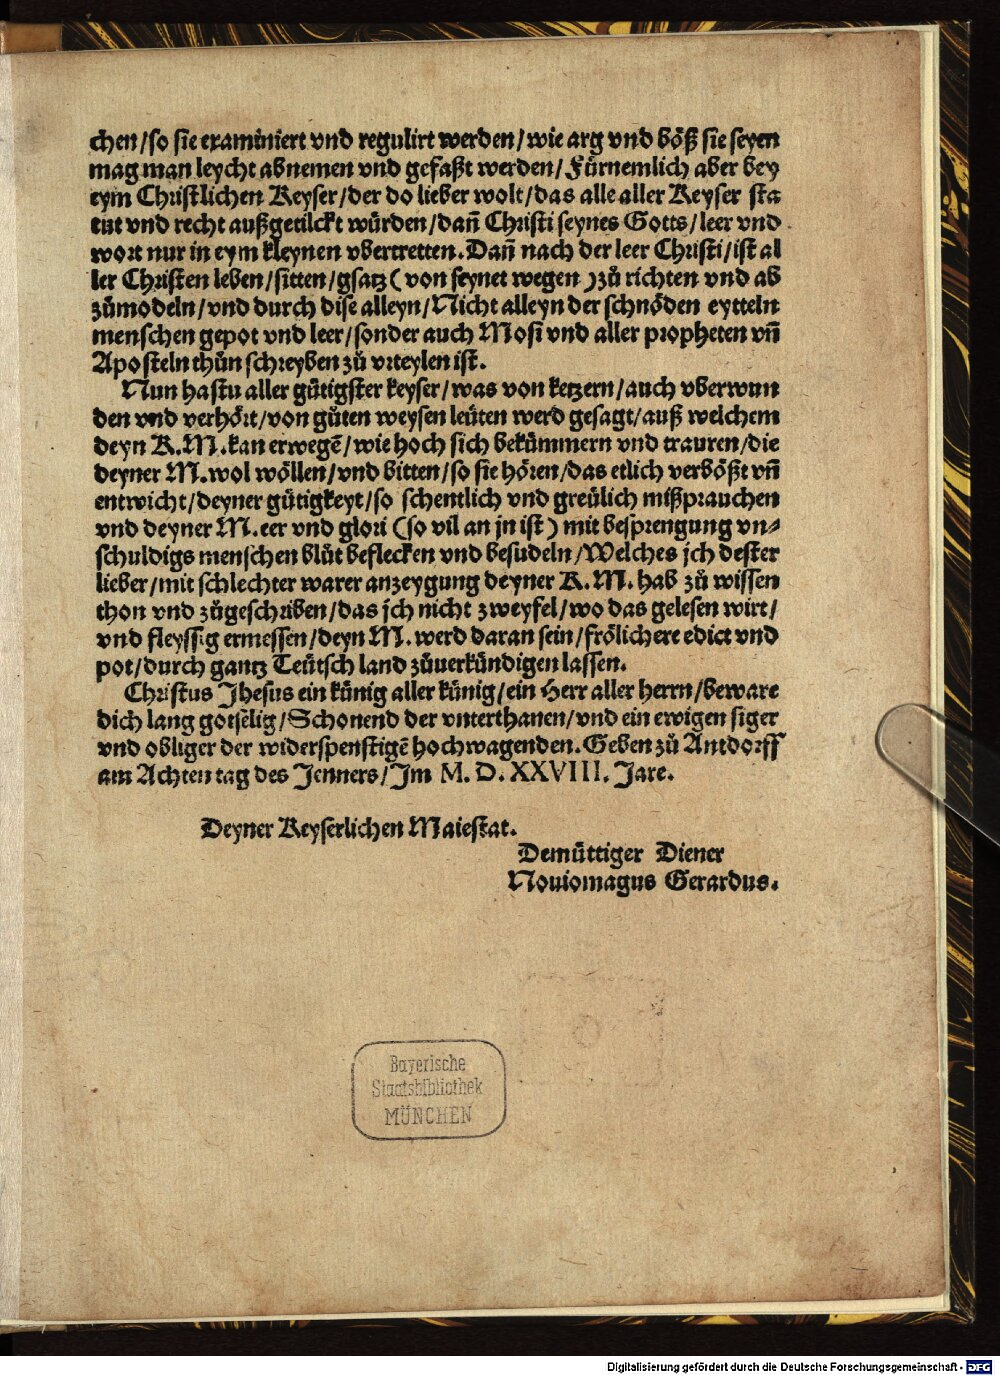 chen/so sie examiniert vnd regulirt werden/wie arg vnd böß sie seyen
mag man leycht abnemen vnd gefaßt werden/Fürnemlich aber bey
eym Christlichen Keyser/der do lieber wolt/das alle aller Keyser sta
tut vnd recht außgetilckt würden/dañ Christi seynes Gotts/leer vnd
wort nur in eym kleynen vbertretten. Dañ nach der leer Christi/ist al
ler Christen leben/sitten/gsatz (von seynet wegen) zů richten vnd ab
zůmodeln/vnd durch dise alleyn/Nicht alleyn der schnöden eytteln
menschen gepot vnd leer/sonder auch Mosi vnd aller propheten vñ
Aposteln thůn schreyben zů vrteylen ist.
Nun hastu aller gütigster keyser/was von ketzern/auch vberwun
den vnd verhört/von gůten weysen leüten werd gesagt/auß welchem
deyn K.M.kan erwegē/wie hoch sich bekümmern vnd trauren/die
deyner M.wol wöllen/vnd bitten/so sie hören/das etlich verbößt vñ
entwicht/deyner gütigkeyt/so schentlich vnd greülich mißprauchen
vnd deyner M.eer vnd glori (so vil an jn ist) mit besprengung vn⸗
schuldigs menschen blůt beflecken vnd besudeln/Welches jch dester
lieber/mit schlechter warer anzeygung deyner K.M. hab zů wissen
thon vnd zůgeschriben/das jch nicht zweyfel/wo das gelesen wirt/
vnd fleyssig ermessen/deyn M. werd daran sein/frölichere edict vnd
pot/durch gantz Teütsch land zůuerkündigen lassen.
Christus Jhesus ein künig aller künig/ein Herr aller herrn/beware
dich lang gotselig/Schonend der vnterthanen/vnd ein ewigen siger
vnd obliger der widerspenstigē hochwagenden. Geben zů Antdorff
am Achten tag des Jenners/Jm M. D. XXVIII. Jare.
Deyner Keyserlichen Maiestat.
Demüttiger Diener
Nouiomagus Gerardus.
Bayerische
Staatsbibliothek
MÜNCHEN
Digitalisierung gefördert durch die Deutsche Forschungsgemeinschaft - DFG